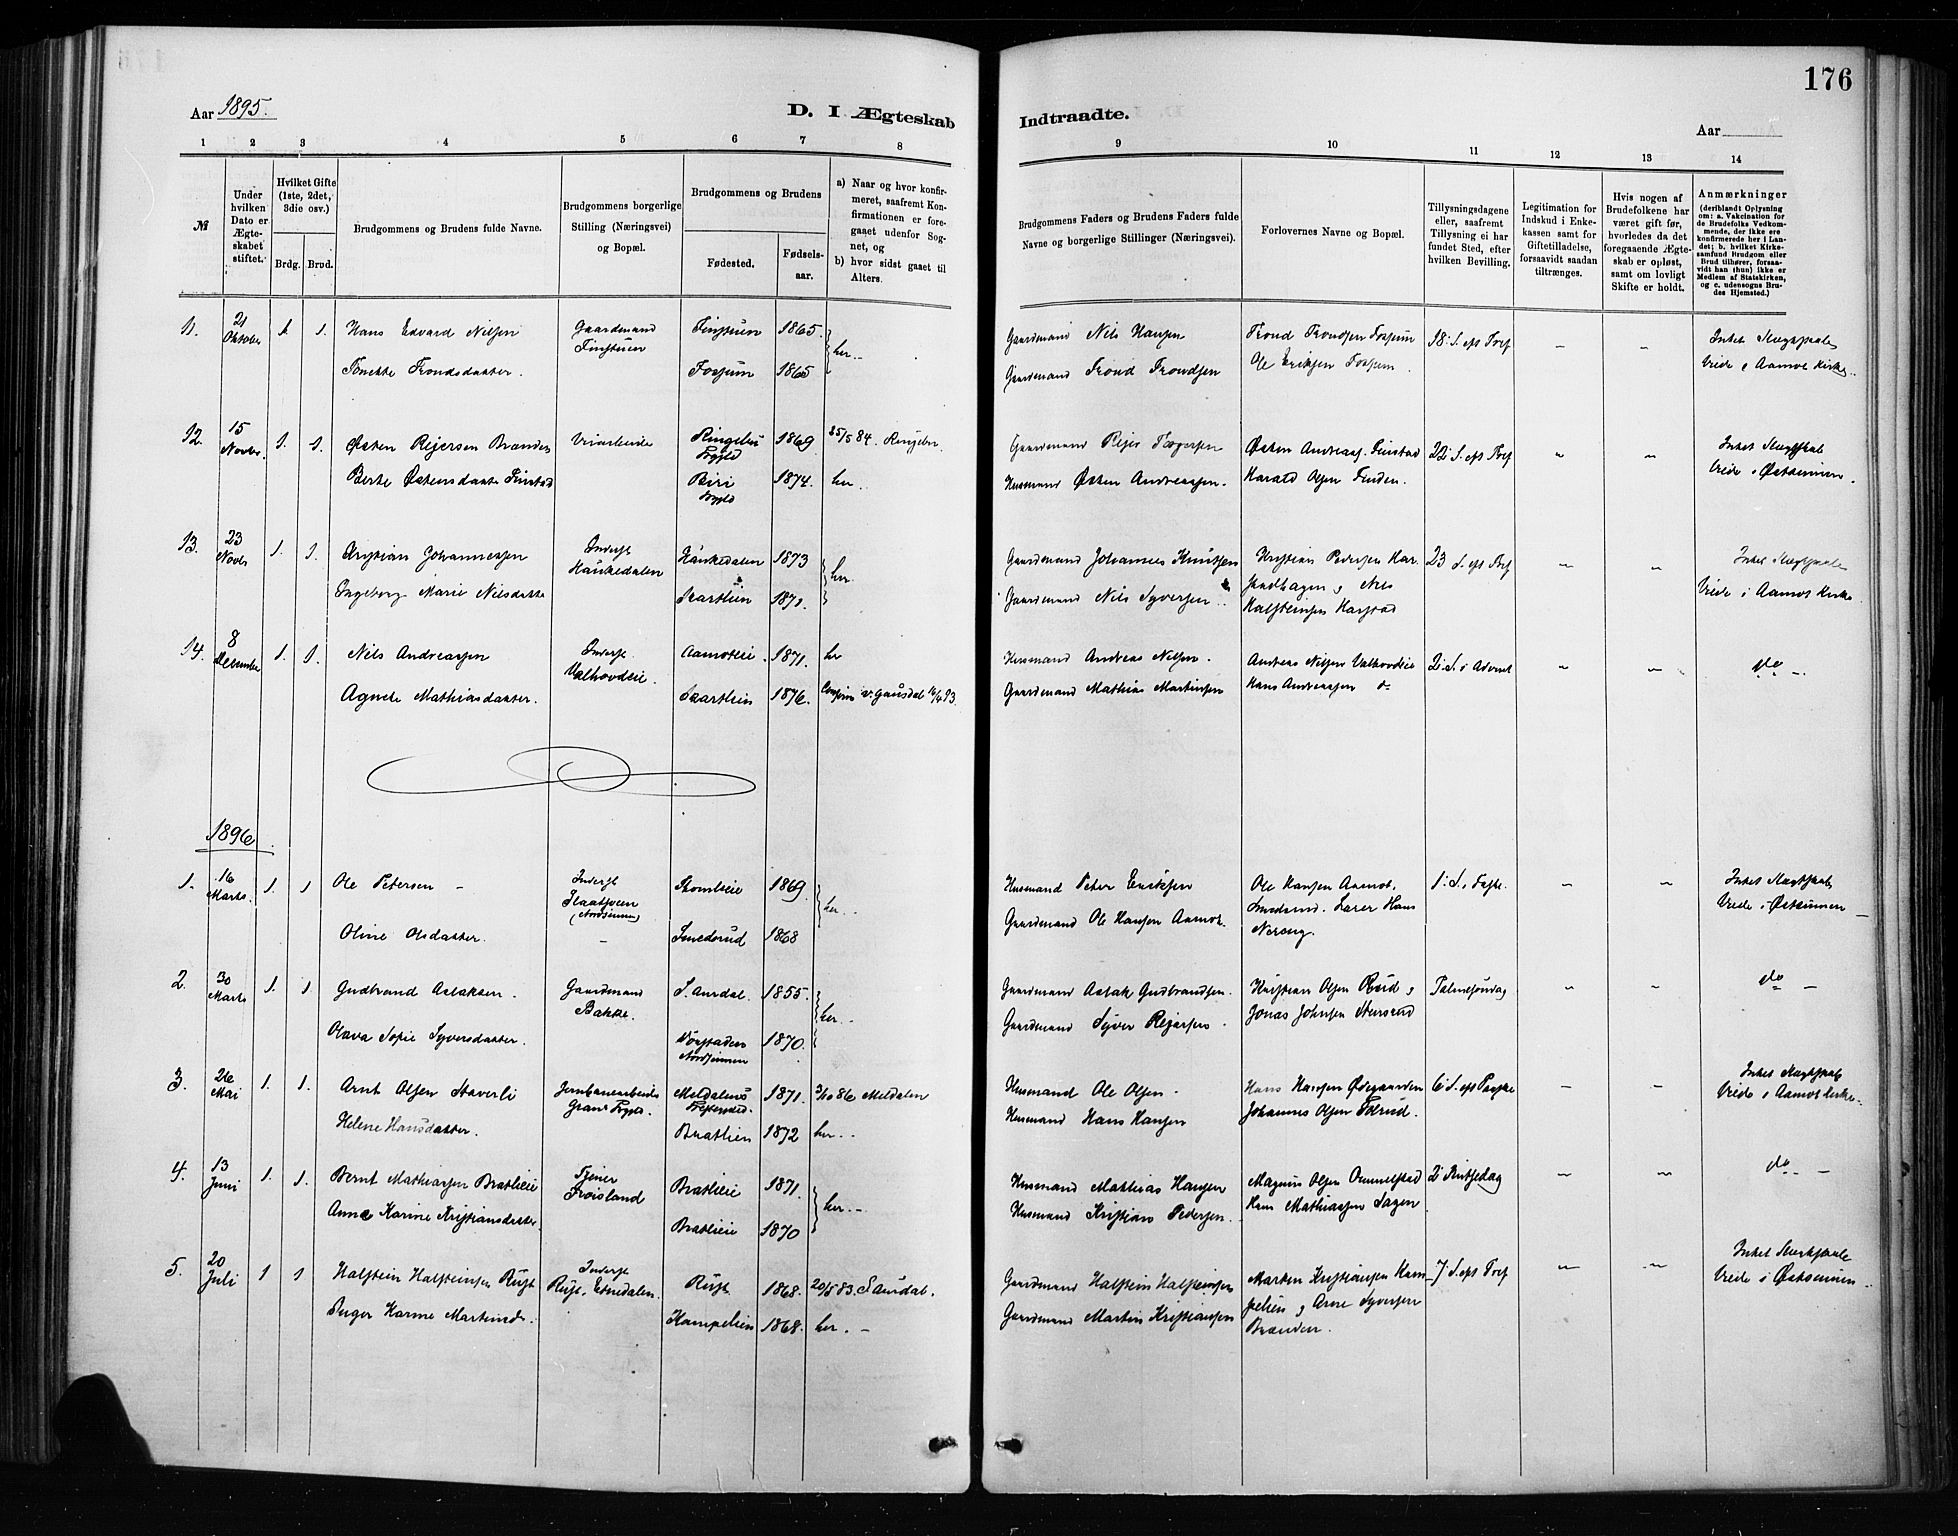 176
Aar 1895.
D. I Ægteskab
Indtraadte.
Aar
1 2 3 4 5 6 7 8
9 10 11 12 13 14
№
Under hvilken Dato er Ægteskabet stiftet.
Hvilket Gifte (1ste, 2det, 3die osv.)
Brdg. Brud.
Brudgommens og Brudens fulde Navne.
Brudgommens borgerlige Stilling (Næringsvei) og Bopæl.
Brudgommens og Brudens
Fødested. Fødselsaar.
a) Naar og hvor konfirmeret, saafremt Konfirmationen er foregaaet udenfor Sognet, og
b) hvor sidst gaaet til Alters.
Brudgommens Faders og Brudens Faders fulde Navne og borgerlige Stillinger (Næringsvei).
Forlovernes Navne og Bopæl.
Tillysningsdagene eller, saafremt Tillysning ei har fundet Sted, efter hvilken Bevilling.
Legitimation for Indskud i Enkekassen samt for Giftetilladelse, forsaavidt saadan tiltrænges.
Hvis nogen af Brudefolkene har været gift før, hvorledes da det foregaaende Ægteskab er opløst, samt om lovligt Skifte er holdt.
Anmærkninger
(deriblandt Oplysning om: a. Vakcination for de Brudefolks Vedkommende, der ikke ere konfirmerede her i Landet; b. hvilket Kirkesamfund Brudgom eller Brud tilhører, forsaavidt han (hun) ikke er Medlem af Statskirken, og c. udensogns Brudes Hjemsted.)
11. 21 Oktober 1. 1. Hans Edvard Nilsen Gaardmand Finstuen 1865 her.. Gaardmand Nils Hansen Trond Trondsen Fossum 18. S. eft Tref
Tonette Trondsdatter. Fossum 1865 Gaardmand Trond Trondsen Ole Eriksen Fossum. Viede i Aamot Kirke..
12. 15 Novbr. 1. 1. Østen Reiersen Brænden Ringebu 1869 25/5 84. Ringebu Gaardmand Østen Andreass. Finstad 22 S. eft Tref
Berte Østensdatte Finstad Biri 1874. her.. Husmand Østen Andreassen. Harald Olsen Finden. Viede i Østsinnen.
13. 23 Novbr 1. 1. Kristian Johannessen Inderst Haukedalen 1873 her. Gaardmand Johannes Knutsen Kristian Pedersen 23 S. eft Tref
Ingeborg Marie Nilsdatte Skartlien 1871. Gaardmand Nils Syversen.. Viede i Aamot Kirke.
14. 8 December 1. 1. Nils Andreassen Inderst Valhovdeie. Aamoteie 1871. her Husmand Andreas Nilsen. Andreas Nilsen Valhovdeie 2. S. i Advent do
Agnete Mathiasdatter. Skartlien 1876. Gausdal 16/4 93. Gaardmand Mathias Martinsen Hans Andreassen do
1896
1. 16 Marts. 1. 1 Ole Petersen Inderst (Nordsinnen) 1869 her.. Husmand Peter Eriksen Ole Hansen Aamot. 1. S. i Faste.
Oline Olsdatter. Smedsrud 1868 Gaardmand Ole Hansen Aamot. Smedsrud. Lærer Hans Nereng. Viede i Østsinnen
2. 30 Marts 1. 1 Gudbrand Aslaksen. Gaardmand Bakke. S. Aurdal. 1855. her.. Gaardmand Aslak Gudbrandsen. Kristian Olsen Rud Palmesøndag do
Olava Sofie Syversdatter. Nordsinnen 1870. Gaardmand Syver Reiersen.
3. 26 Mai 1. 1. Arnt Olsen Staverli Jernbanearbeider Grans Prgld. Meldalens 1871. 3/10 86 Meldalen Husmand Ole Olsen Hans Hansen Ødegaarden 6 S. eft Paaske
Helene Hansdatter. Bratlien 1872 her.. Husmand Hans Hansen Johannes Olsen Viede i Aamot Kirke..
4. 13 Juni 1. 1. Bernt Mathiassen Bratlieie Tjener Frøisland Bratlieie 1871. her.. Husmand Mathias Hansen Magnus Olsen Ommelstad 2 Pintsedag do
Anne Karine Kristiansdatte. Bratlieie 1870 Husmand Kristian Pedersen. Hans Mathiassen Sagen
5. 20 Juli 1 1 Halstein Halsteinsen Rust Inderst Rust, Etnedalen. Rust 1868. 20/5 83. S Aurdal. Gaardmand Halstein Halsteinsen Marten Kristiansen Kam- 7. S. eft Tref
Inger Karine Martinsd. Kampelien 1868. her. Gaardmand Martin Kristiansen pelien og Arne Syversen Brænden. Viede i Østsinnen